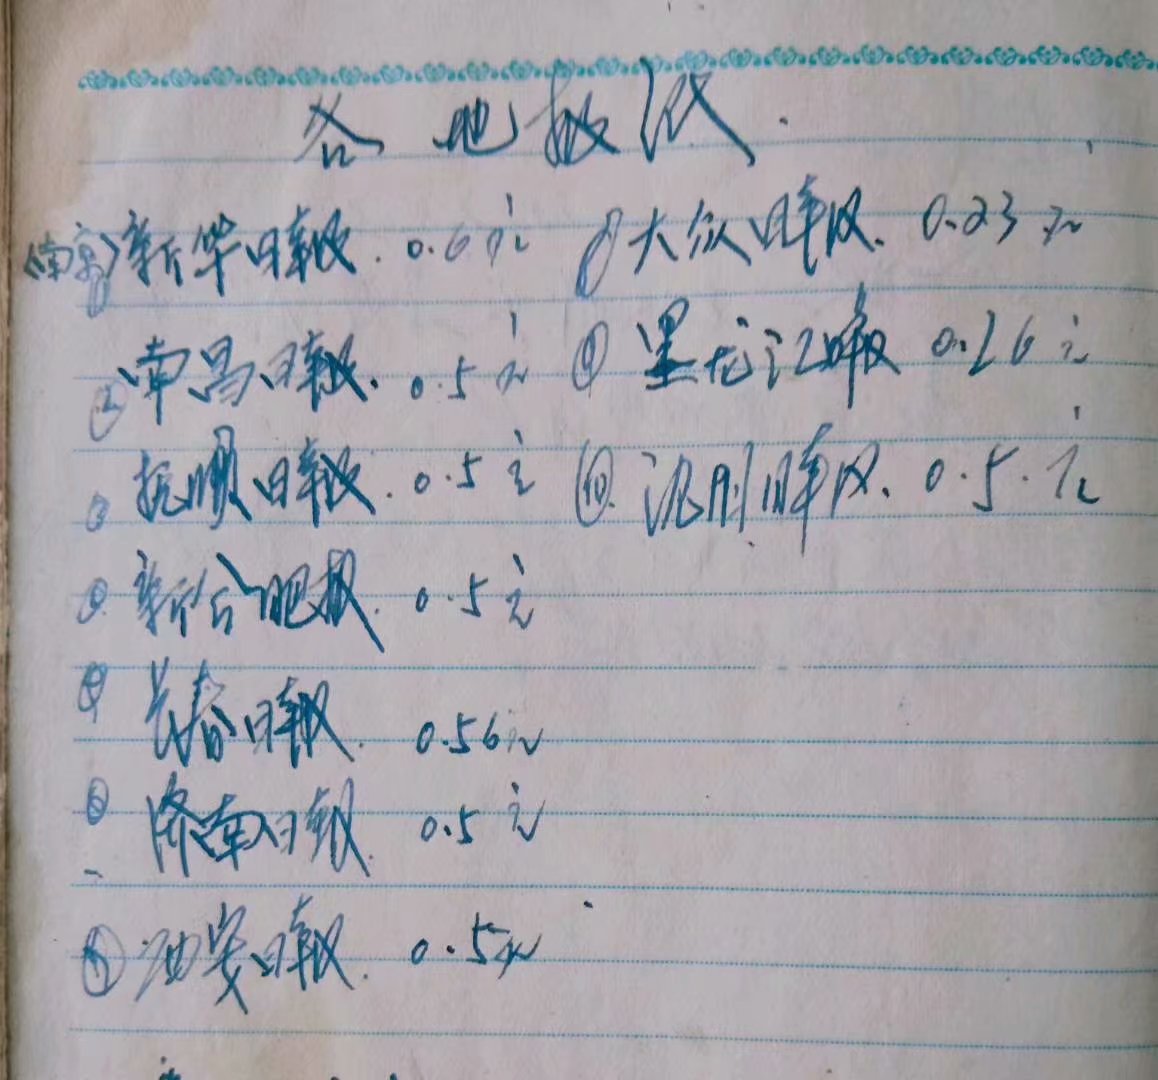 各地报纸.
①(南京)新华日报. 0.6元
②南昌日报. 0.5元
③抚顺日报. 0.5元
④新合肥报. 0.5元
⑤长春日报. 0.56元
⑥济南日报. 0.5元
⑦西安日报. 0.5元
⑧大众日报. 0.23元
⑨黑龙江日报 0.26元
⑩日报. 0.5元